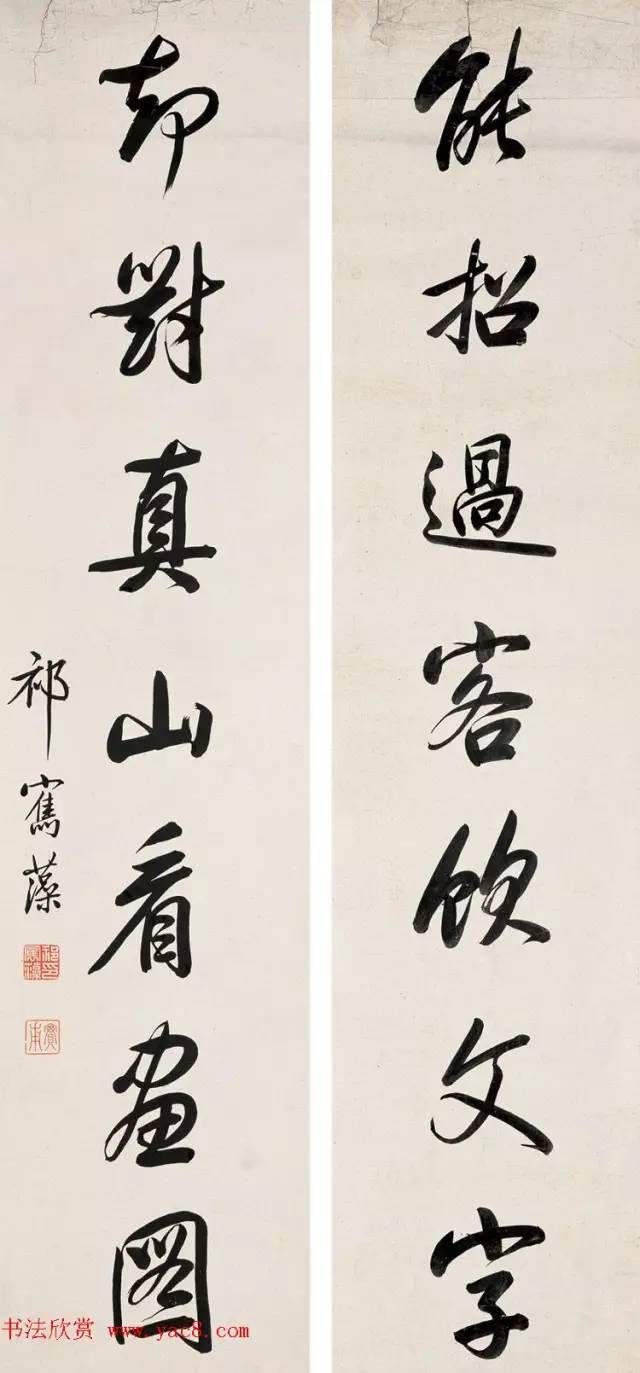 能招過客飲文字
却對真山看畫圖
祁寯藻
書法欣赏 www.yac8.com